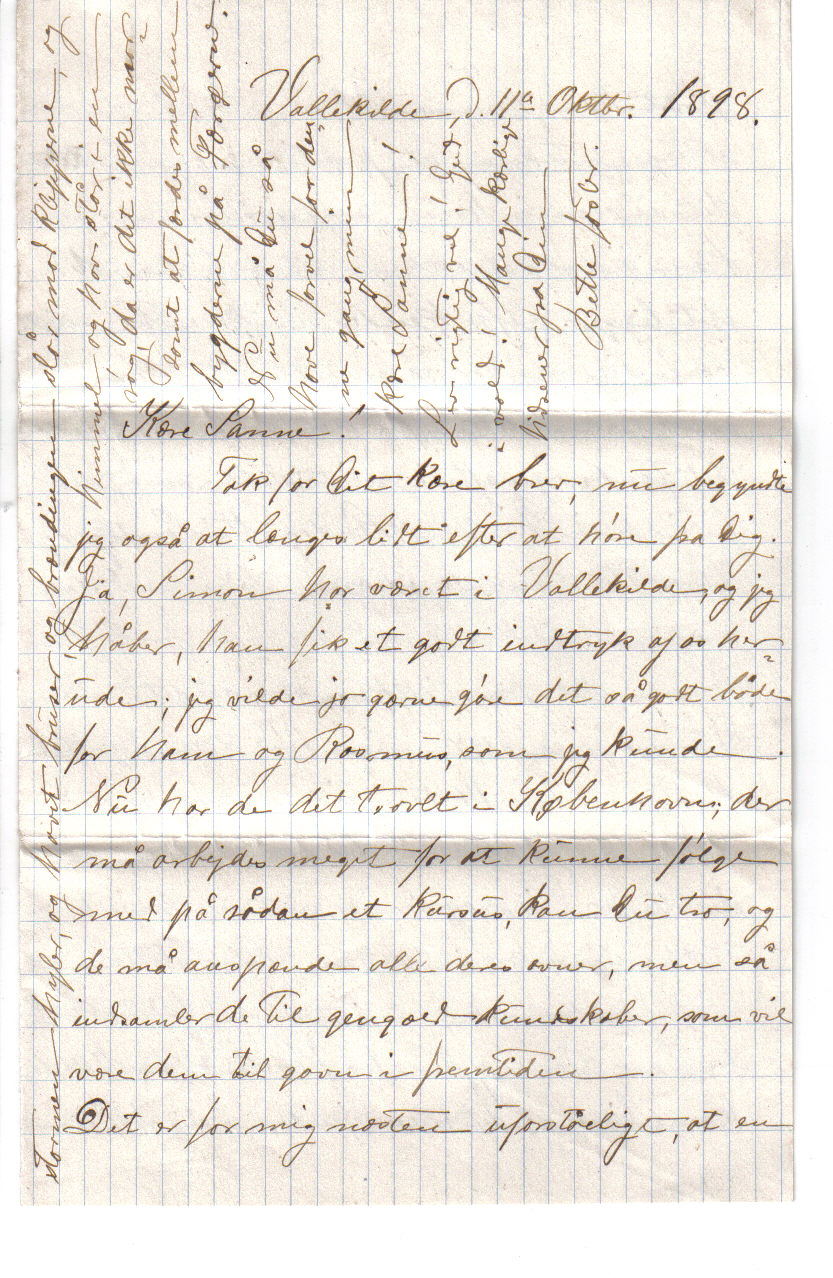 Vallekilde, d. 11te Oktbr. 1898.
Kære Sanne!
Tak for Dit kære brev, nu begyndte
jeg også at længes lidt efter at høre fra Dig.
Ja, Simon har været i Vallekilde, og jeg
håber, han fik et godt indtryk af os her-
ude; jeg vilde jo gærne gøre det så godt både
for ham og Rasmus, som jeg kunde.
Nu har de det travlt i København; der
må arbejdes meget for at kunne følge
med på sådan et kursus, kan Du tro, og
de må anspænde alle deres evner, men så
indsamler de til gengæld kundskaber, som vil
være dem til gavn i fremtiden.
Det er for mig næsten uforståeligt, at en
stormen hyler, og havet bruser, og brændingen slår mod klipperne, og
himmel og hav står i en
røg, da er det ikke mor-
somt at færdes mellem
bygderne på Færøerne.
Nu må Du så
have farvel for den-
ne gang, min
kære Sanne!
Lev rigtig vel! Gud
i vold! Mange kærlige
hilsener fra Din
Bette